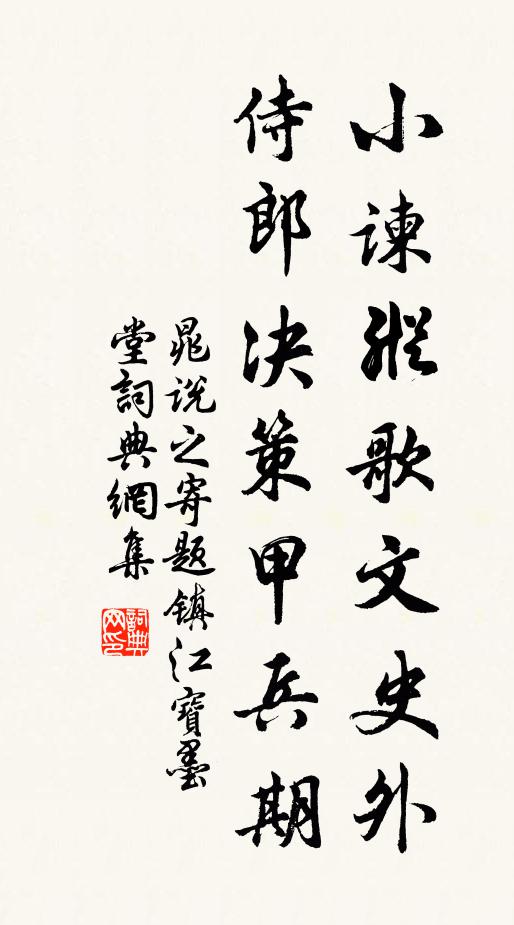 小諫縱歌文史外
侍郎决策甲兵期
晁說之寄题镇江寶墨
堂詞典網集
詞典网印